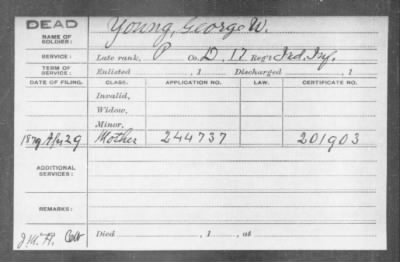 DEAD
NAME OF SOLDIER: Young, George W.
SERVICE: Late rank, P Co. D, 17 Reg't Ind. Inf.
TERM OF SERVICE: Enlisted , 1 Discharged , 1
DATE OF FILING. CLASS. APPLICATION NO. LAW. CERTIFICATE NO.
Invalid,
Widow,
Minor,
1879 Apr 29 Mother 244737 201903
ADDITIONAL SERVICES:
REMARKS:
Died , 1 , at